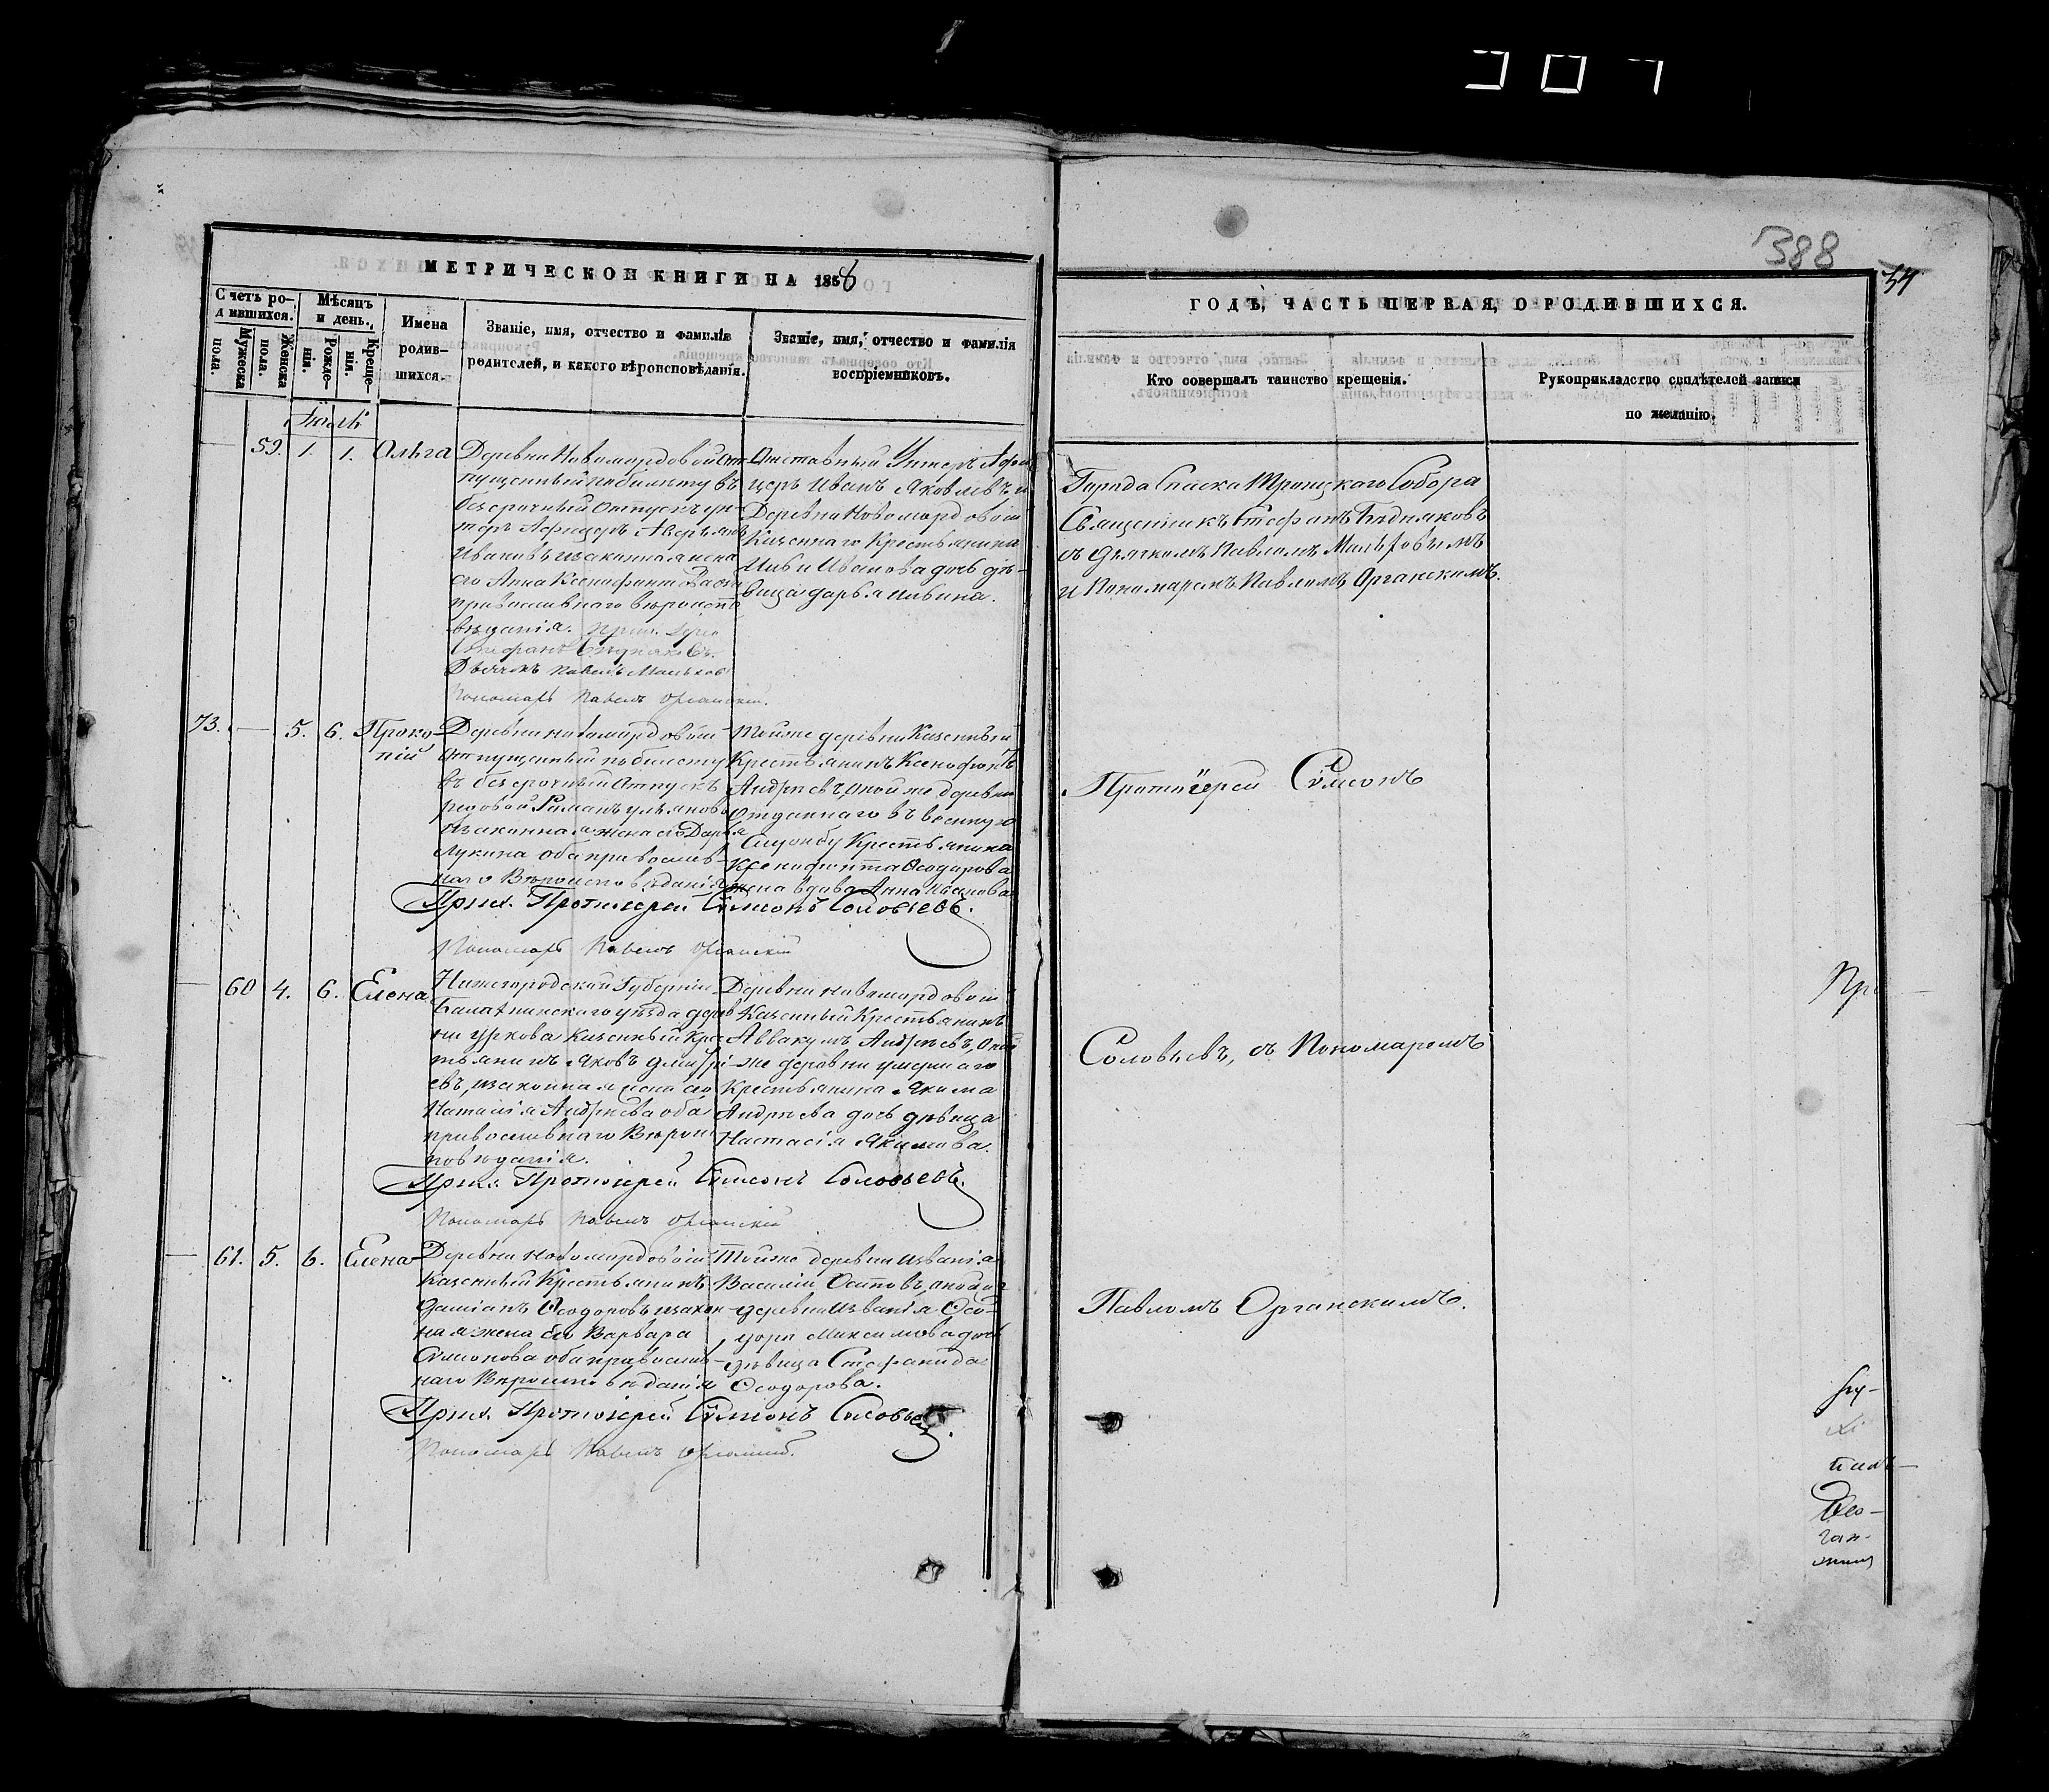 388
54
МЕТРИЧЕСКОЙ КНИГИ НА 1858
ГОДЪ, ЧАСТЬ ПЕРВАЯ, О РОДИВШИХСЯ.
Счетъ ро-
дившихся.
Мужеска
пола.
Женска
пола.
Мѣсяцъ
и день.
Рожде-
нія.
Креще-
нія.
Имена
родив-
шихся.
Званіе, имя, отчество и фамилія
родителей, и какого вѣроисповѣданія.
Званіе, имя, отчество и фамилія
воспріемниковъ.
Кто совершалъ таинство крещенія.
Рукоприкладство свидѣтелей записи
по желанію.
Іюль
59. 1. 1. Ольга
Деревни Новомордовой от-
пущенный по билету въ
безсрочный отпускъ ун-
теръ Афицеръ
Ивановъ и законная жена
его Анна Ксенофонтова оба
православнаго вѣроиспо-
вѣданія.
Стефанъ Бѣдняковъ.
Дьячекъ Павелъ
Пономарь Павелъ Органскій.
Отставный Унтеръ Афи-
церъ Иванъ Яковлевъ и
Деревни Новомордовой
Казеннаго Крестьянина
Ильи Иванова дочь дѣ-
вица Дарья Ильина.
Города Спаска Троицкаго Собора
Священникъ Стефанъ Бѣдняковъ
съ дьячкомъ Павломъ
и Пономаремъ Павломъ Органскимъ.
73. 5. 6. Проко-
пій
Деревни Новомордовой
отпущенный по билету
въ безсрочный отпускъ
рядовой Романъ Ульяновъ
и законная жена его Дарья
Лукина оба православ-
наго Вѣроисповѣданія
Прих. Протоіерей Сѵмеонъ Соловьевъ.
Пономарь Павелъ Органскій
Той же деревни Казенный
Крестьянинъ Ксенофонтъ
Андреевъ, оной же деревни
отданнаго въ военную
Службу Крестьянина
Ксенофонта Ѳеодорова
жена вдова Анна
Протоіерей Сѵмеонъ
60 4. 6. Елена
Нижегородской Губерніи
Балахнинскаго уѣзда дерев-
ни Уркова казенный Крес-
тьянинъ Яковъ Дмитрі-
евъ, и законная жена его
Наталія Андреева оба
православнаго Вѣроис-
повѣданія.
Прих. Протоіерей Сѵмеонъ Соловьевъ.
Пономарь Павелъ Органскій
Деревни Новомордовой
Казенный Крестьянинъ
Аввакумъ Андреевъ, оной
же деревни умершаго
Крестьянина Якима
Андреева дочь дѣвица
Настасія Якимова.
Соловьевъ, съ Пономаремъ
61. 5. 6. Елена
Деревни Новомордовой
Казенный Крестьянинъ
Даміанъ Ѳеодоровъ и закон-
ная жена его Варвара
Сѵмеонова оба православ-
наго Вѣроисповѣданія
Прих. Протоіерей Сѵмеонъ Соловьевъ.
Пономарь Павелъ Органскій.
Той же деревни и званія
Василій Осиповъ, оной же
деревни и званія Ѳео-
дора Максимова дочь
дѣвица Стефанида
Ѳеодорова.
Павломъ Органскимъ.